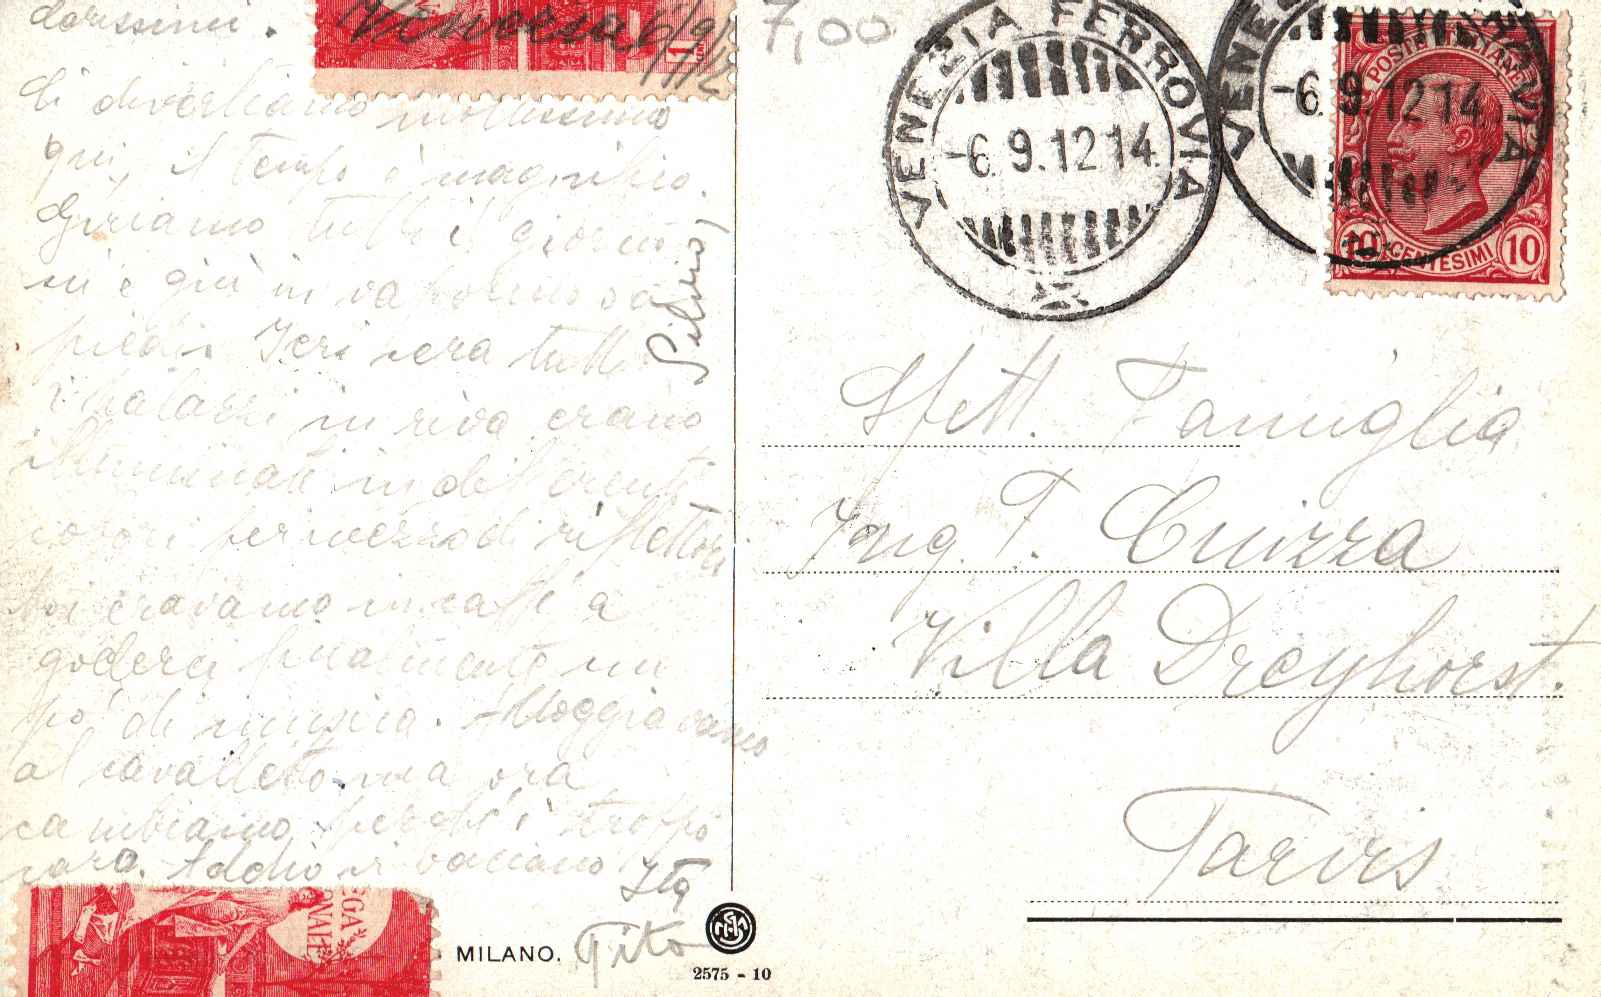 Venezia 6/9/
1912
dorissimi.
Ci divertiamo moltissimo
qui, il tempo è magnifico.
Giriamo tutto il giorno
su e giù in vaporino o a
piedi. Ieri sera tutti
i palazzi in riva erano
illuminati in differenti
colori per mezzo di riflettori
Noi eravamo in caffè a
goderci finalmente un
po' di musica. Alloggiavamo
al cavalletto ma ora
cambiamo perchè è troppo
caro. Addio vi baciano
Ita
Tito
Silvio
7,00
VENEZIA FERROVIA
-6.9.12 14
VENEZIA FERROVIA
-6.9.12 14
POSTE ITALIANE
10 CENTESIMI 10
Spett. Famiglia
Ing. T. Cuizza
Villa Dreyhorst.
Tarvis
EGA
MILANO.
2575 - 10